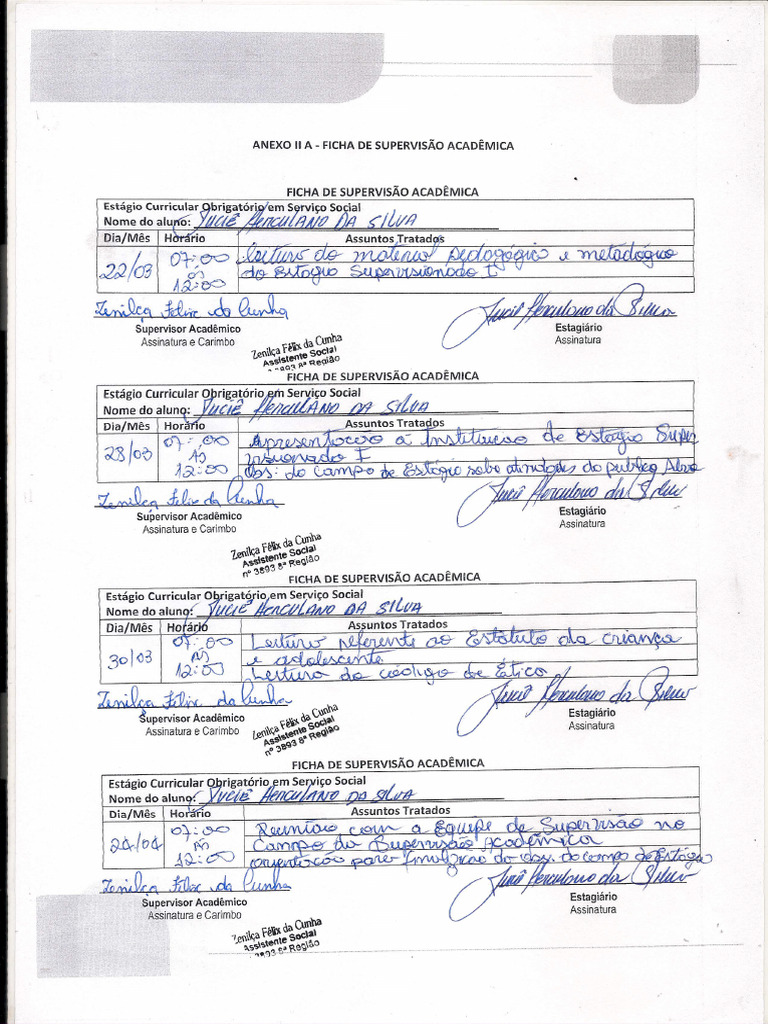 ANEXO II A - FICHA DE SUPERVISÃO ACADÊMICA
FICHA DE SUPERVISÃO ACADÊMICA
Estágio Curricular Obrigatório em Serviço Social
Nome do aluno: Juciê Herculano da Silva
Dia/Mês Horário Assuntos Tratados
22/03 07:00 às 12:00 leitura do material pedagógico e metadógico
do Estágio Supervisionado I
Zenilça Felix da Cunha Juciê Herculano da Silva
Supervisor Acadêmico Estagiário
Assinatura e Carimbo Assinatura
Zenilça Félix da Cunha
Assistente Social
nº 3893 8ª Região
FICHA DE SUPERVISÃO ACADÊMICA
Estágio Curricular Obrigatório em Serviço Social
Nome do aluno: Juciê Herculano da Silva
Dia/Mês Horário Assuntos Tratados
28/03 07:00 às 12:00 Apresentação à Instituição de Estágio Super
visionado I
Obs: do campo de Estágio sobe atividades do publico Alvo
Zenilça Felix da Cunha Juciê Herculano da Silva
Supervisor Acadêmico Estagiário
Assinatura e Carimbo Assinatura
Zenilça Félix da Cunha
Assistente Social
nº 3893 8ª Região
FICHA DE SUPERVISÃO ACADÊMICA
Estágio Curricular Obrigatório em Serviço Social
Nome do aluno: Juciê Herculano da Silva
Dia/Mês Horário Assuntos Tratados
30/03 07:00 às 12:00 Leitura referente ao Estatuto da criança
e adolescente
Leitura do código de Ético
Zenilça Felix da Cunha Juciê Herculano da Silva
Supervisor Acadêmico Estagiário
Assinatura e Carimbo Assinatura
Zenilça Félix da Cunha
Assistente Social
nº 3893 8ª Região
FICHA DE SUPERVISÃO ACADÊMICA
Estágio Curricular Obrigatório em Serviço Social
Nome do aluno: Juciê Herculano da Silva
Dia/Mês Horário Assuntos Tratados
24/04 07:00 às 12:00 Reunião com a Equipe de Supervisão no
Campo da Supervisão Acadêmica
orientação para finalização do obs. do campo de Estágio
Zenilça Felix da Cunha Juciê Herculano da Silva
Supervisor Acadêmico Estagiário
Assinatura e Carimbo Assinatura
Zenilça Félix da Cunha
Assistente Social
3893 8ª Região